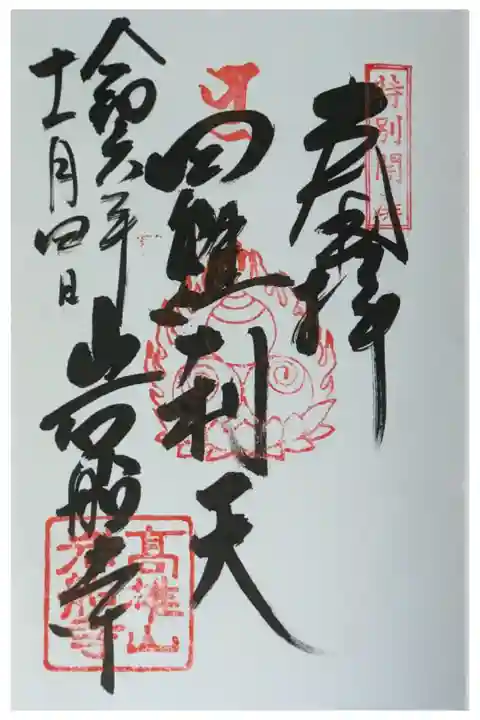 特別開扉
奉拝
利天
岩船寺
令和六年
十一月四日
高雄山
岩船寺